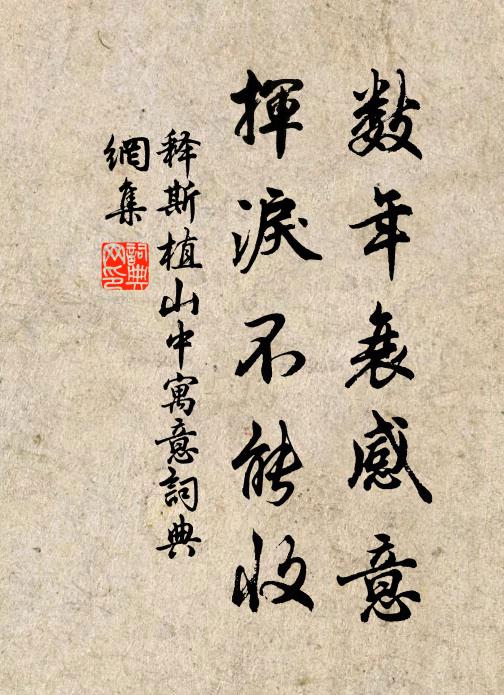 數年衰感意
揮淚不能收
释斯植山中寓意詞典
網集
詞典
网印